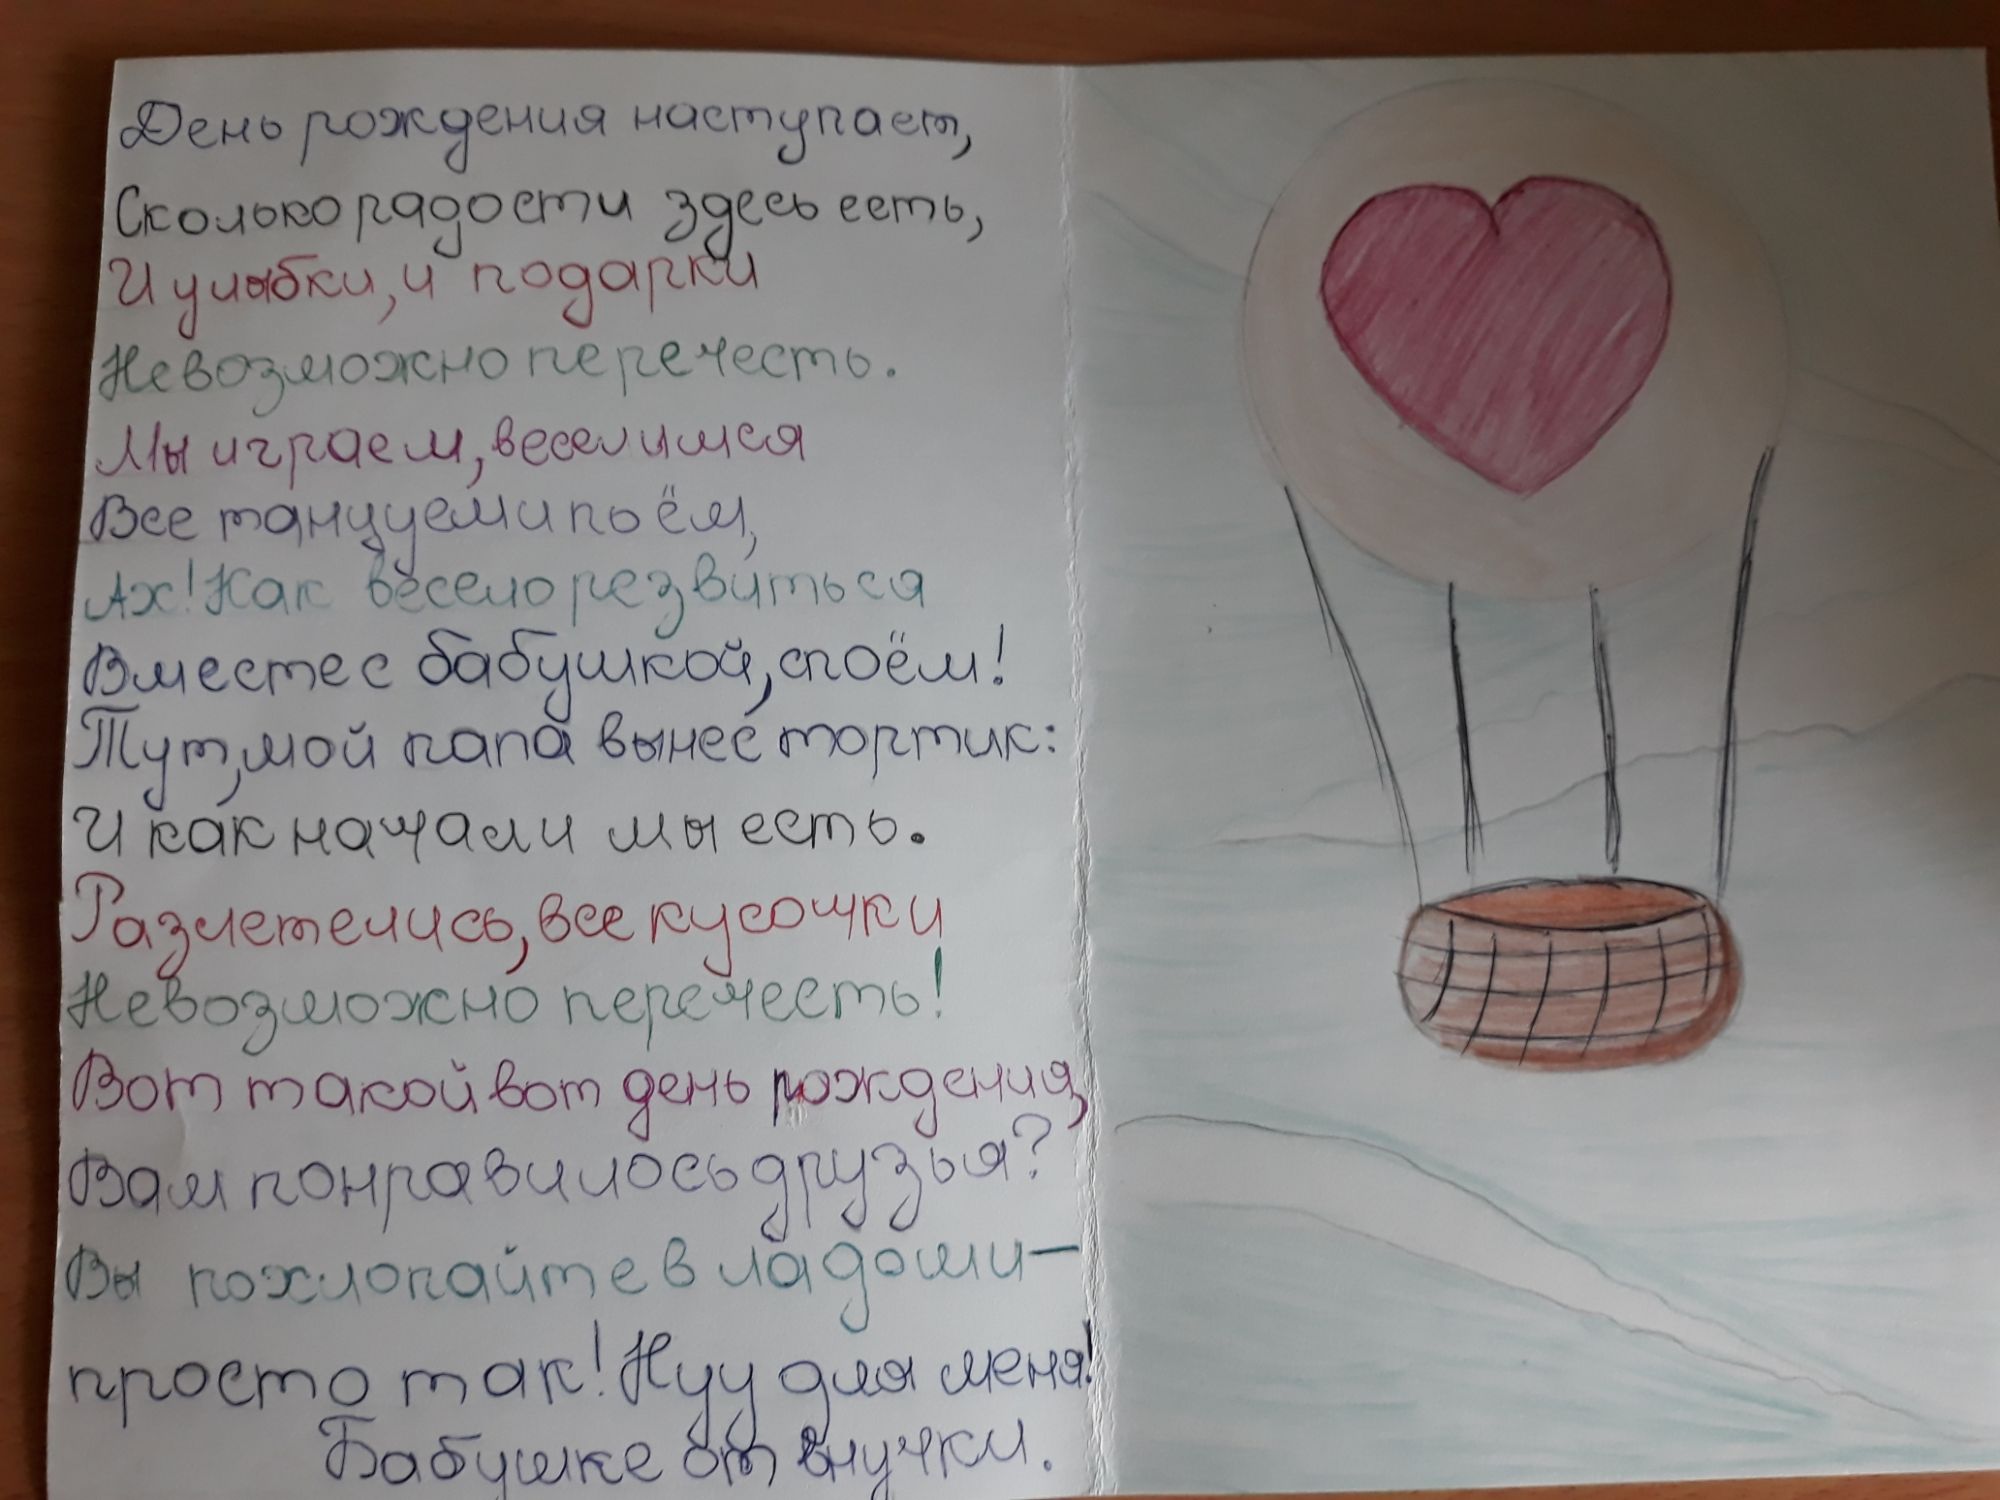 День рождения наступает,
Сколько радости здесь есть,
И улыбки, и подарки
Невозможно перечесть.
Мы играем, веселимся
Все танцуем и поём,
Ах! Как весело резвиться
Вместе с бабушкой, споём!
Тут, мой папа вынес тортик:
И как начали мы есть.
Разлетелись, все кусочки
Невозможно перечесть!
Вот такой вот день рождения,
Вам понравилось друзья?
Вы похлопайте в ладоши —
просто так! Нуу для меня!
Бабушке от внучки.